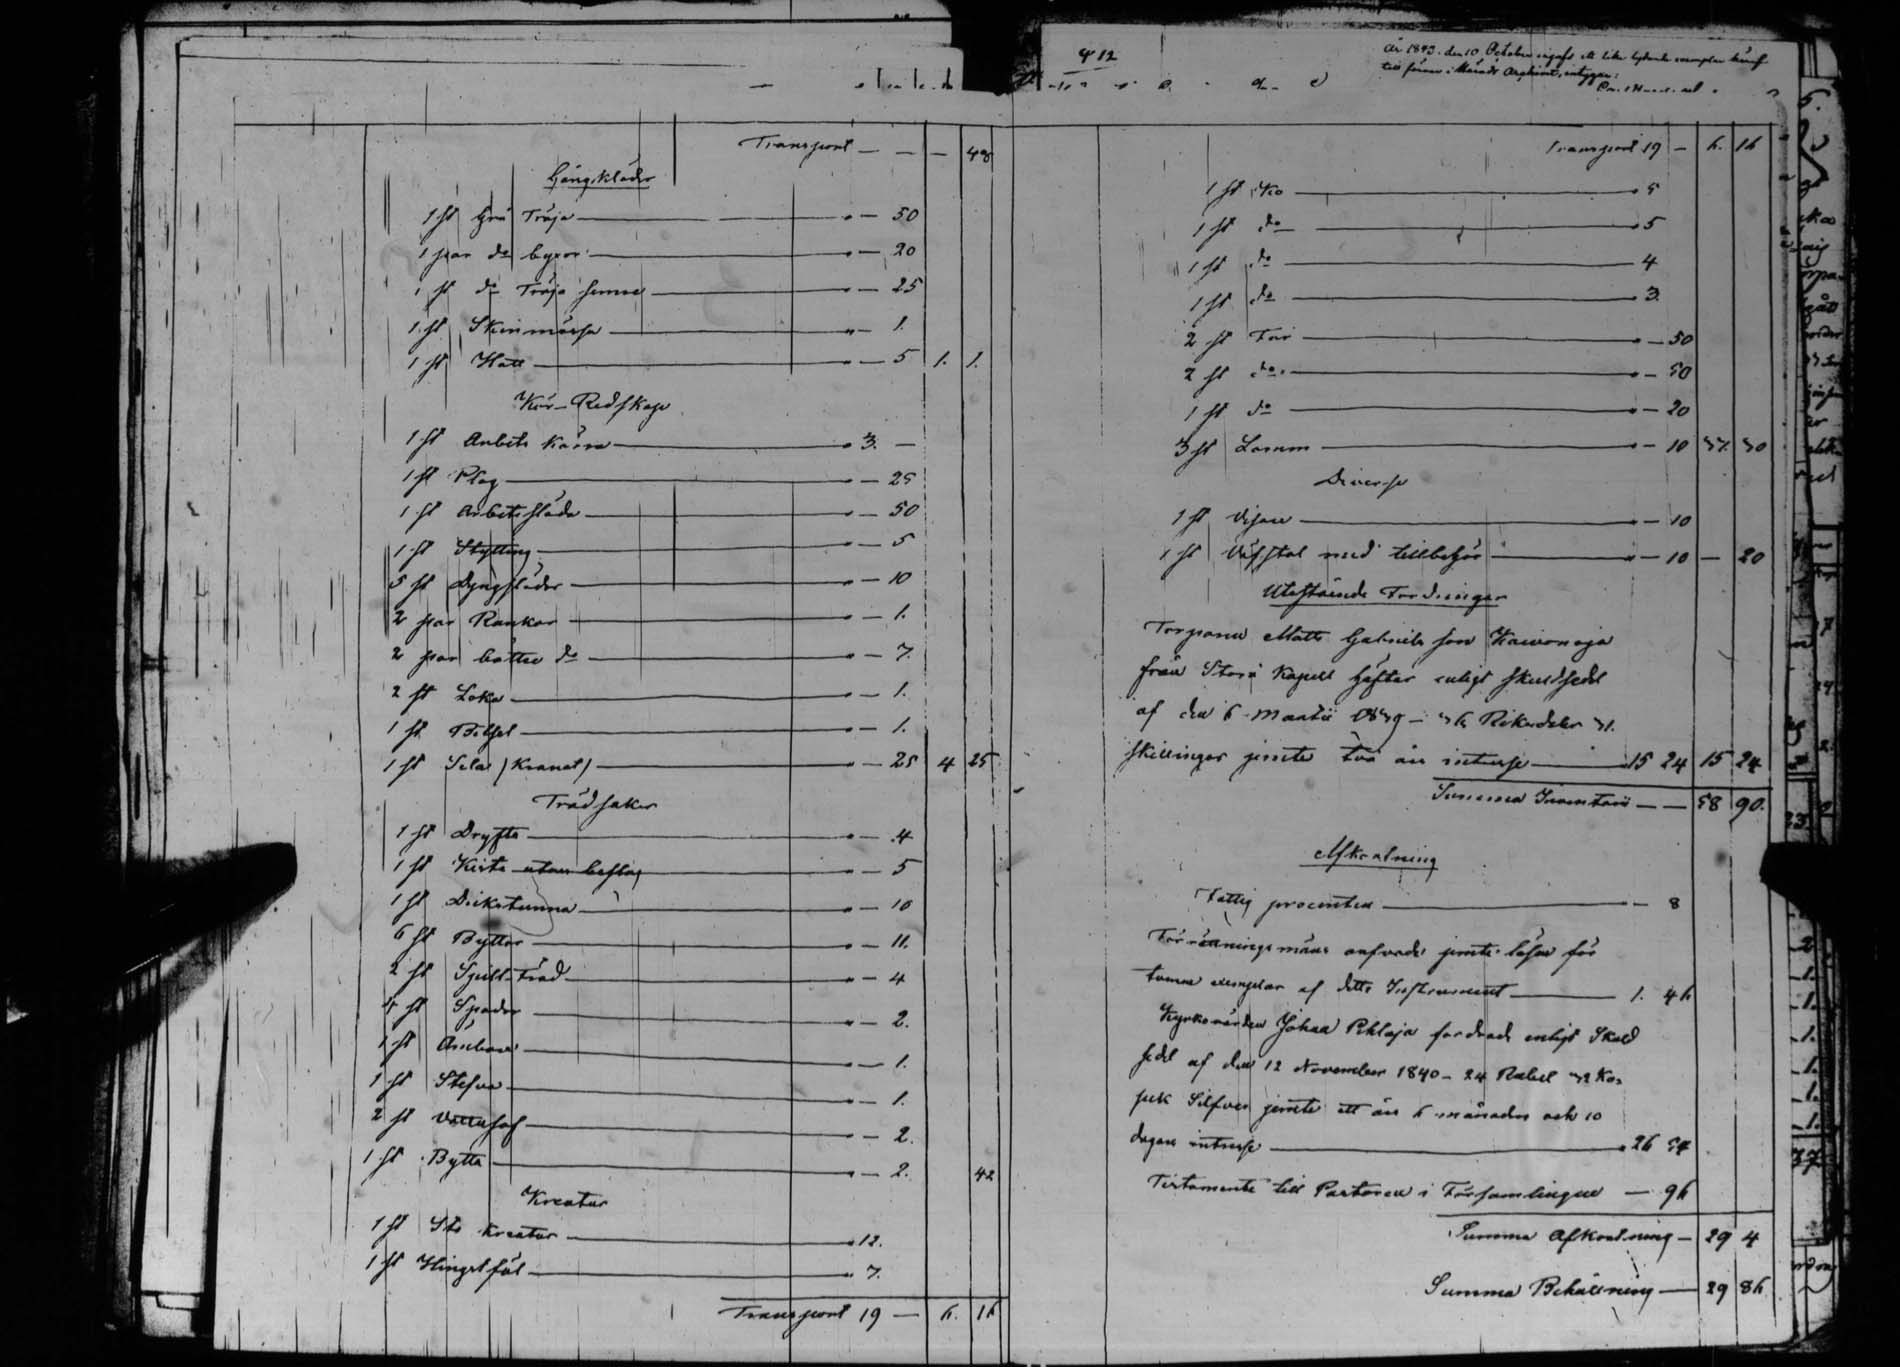 Transport — — — 48
Gångkläder
1 st grå Tröja — 50
1 par do byxor — 20
1 st do Tröja — 25
1 st Skinmössa — 1.
1 st Hatt — 5 1. 1.
Kör-Redskap
1 st Arbets Kärra 3. —
1 st Plog — 25
1 st Arbetssläda — 50
1 st Stytting — 5
5 st Dyngslädor — 10
2 par Rankor — 1.
2 par bättre do — 7.
2 st Loka — 1.
1 st Betsel — 1.
1 st Sela (Kranat) — 25 4 25
Trädsaker
1 st Dryfta — 4
1 st Kista utan beslag — 5
1 st Dricktunna — 10
6 st Byttor — 11.
2 st Spill-Träd — 4
4 st Spador — 2.
1 st Ämbare — 1.
1 st Stefva — 1.
2 st — 2.
1 st Bytta — 2. 42
Kreatur
1 st Sto kreatur 12.
1 st Hingstföl 7.
Transport 19 — 6. 16
412
År 1843. den 10 October ett lika lydande exemplar
till Härads Archivet, intygar:
Transport 19 — 6. 16
1 st Ko 5
1 st do 5
1 st do 4
1 st do 3.
2 st Får — 50
2 st do — 50
1 st do — 20
3 st Lamm — 10 37. 30
Diverse
1 st — 10
1 st Väfstol med tillbehör — 10 — 20
Utestående Fordringar
Torparen Matts Gabriels son
från Storå Kapell häftar enligt skuldsedel
af den 6 Martii 1839 — 36 Riksdaler 31.
skillingar jemte två års intresse 15 24 15 24
Summa Inventarii — — 58 90.
Afkortning
Fattig procenten — 8
Förrättningsmäns arfvode jemte lösen för
tvenne exemplar af detta Instrument 1. 46
Kyrkovärden Johan Pihlaja fordrade enligt Skuld
sedel af den 12 November 1840 — 24 Rubel 32 Ko-
pek Silfver jemte ett års 6 månader och 10
dagars intresse 26 54
Testamente till Pastoren i Församlingen — 96
Summa Afkortning — 29 4
Summa Behållning — 29 86